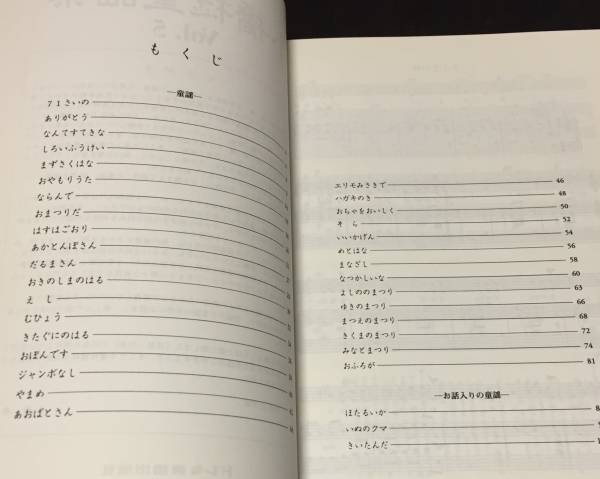 もくじ
―童謡―
71さいの
ありがとう
なんてすてきな
しろいふうけい
まずさくはな
おやもりうた
ならんで
おまつりだ
はすはごおり
あかとんぼさん
だるまさん
おきのしまのはる
えし
むひょう
きたぐにのはる
おぼんです
ジャンボなし
やまめ
あおばとさん
エリモみさきで 46
ハガキのき 48
おちゃをおいしく 50
そら 52
いいかげん 54
めとはな 56
まなざし 58
なつかしいな 60
よしののまつり 63
ゆきのまつり 66
まつえのまつり 68
きくまのまつり 72
みなとまつり 74
おふろが 81
―お話入りの童謡―
ほたるいか
いぬのクマ
きいたんだ